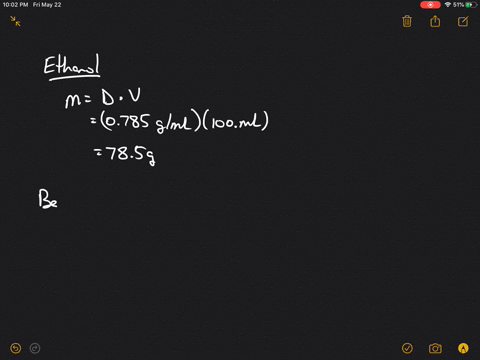 10:02 PM Fri May 22
51%
Ethanol
m = D • V
= (0.785 g/ml)(100. ml)
= 78.5g
Be